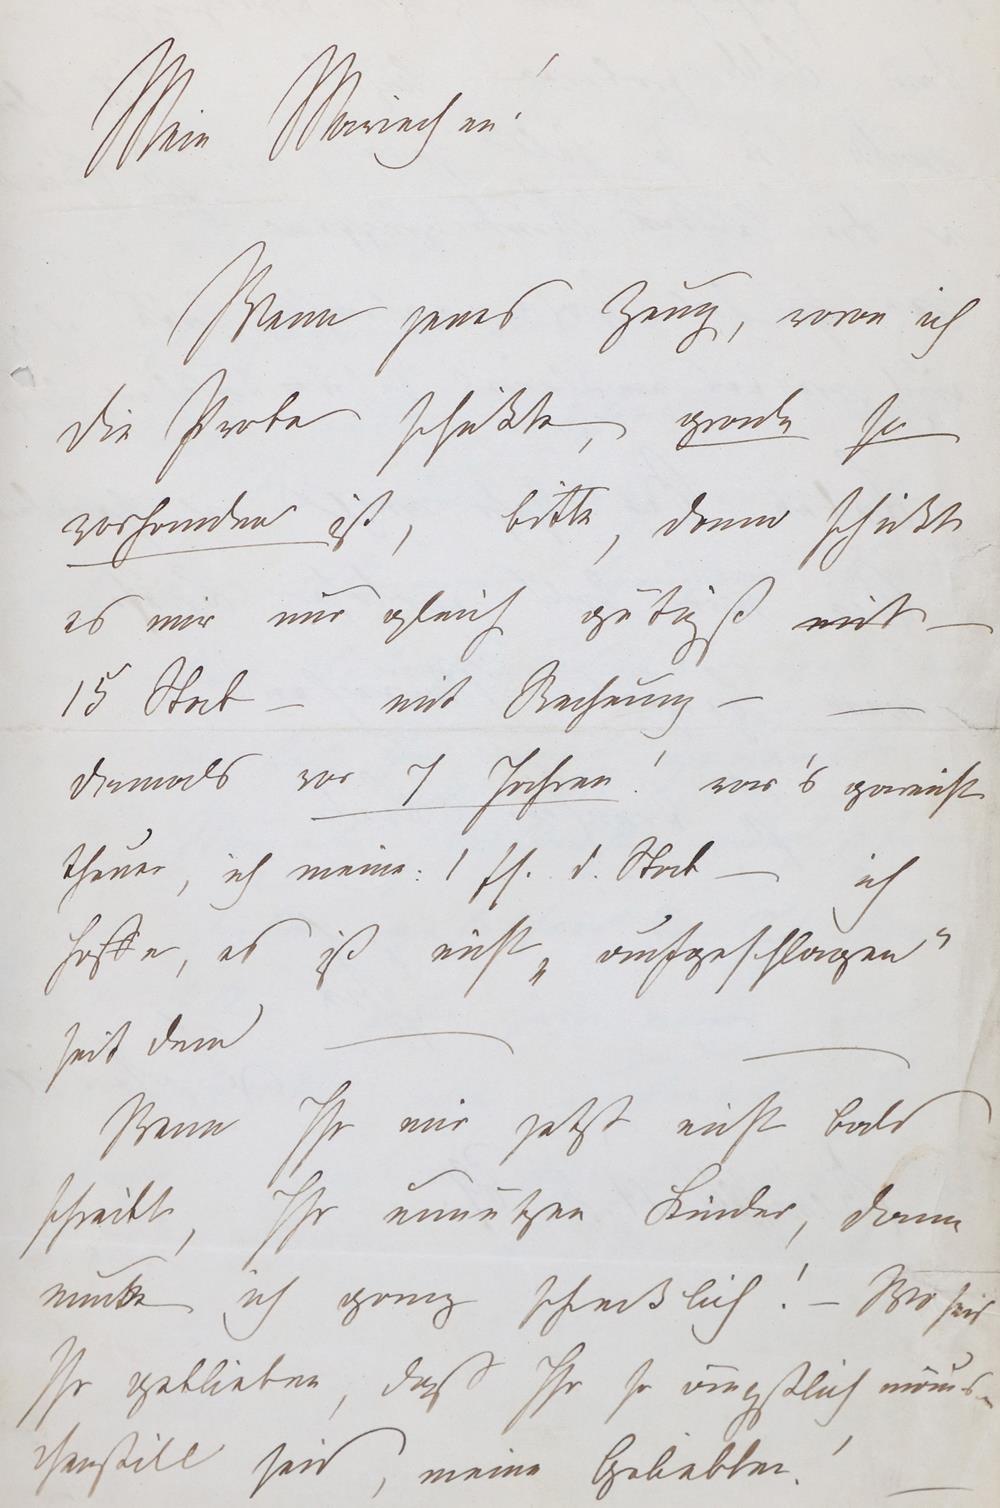 Mein Mariechen!
Wenn jenes Zeug, wovon ich
die Probe schickte, grade so
vorhanden ist, bitte, dann schickt
es mir nur gleich gütigst mit —
15 Stab — mit Rechnung — —
damals vor 7 Jahren! war's gar nicht
theuer, ich meine: 1 fl. d. Stab — ich
hoffe, es ist nicht „aufgeschlagen"
seit dem — —
Wenn Ihr mir jetzt nicht bald
schreibt, Ihr unnützen Kinder, dann
mucke ich ganz schrecklich! — Wo seid
Ihr geblieben, daß Ihr so ängstlich mäus-
chenstill seid, meine Geliebten! —